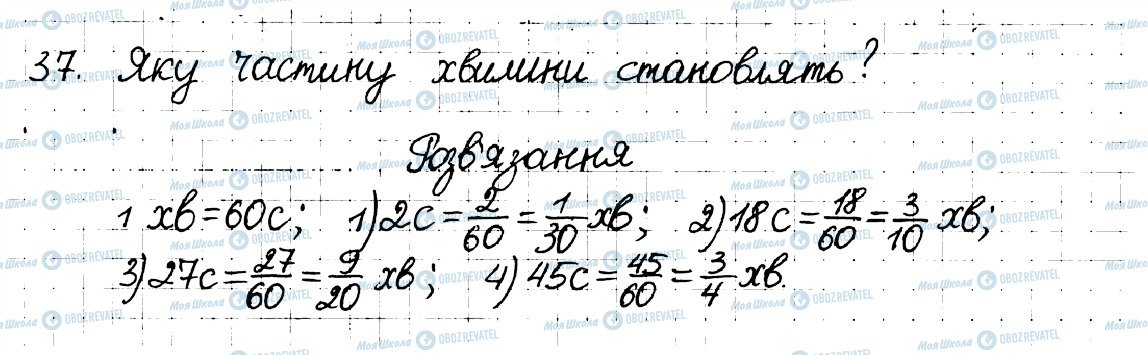 37. Яку частину хвилини становлять?
Розв'язання
1 хв = 60с; 1) 2с = 2/60 = 1/30 хв; 2) 18с = 18/60 = 3/10 хв;
3) 27с = 27/60 = 9/20 хв; 4) 45с = 45/60 = 3/4 хв.